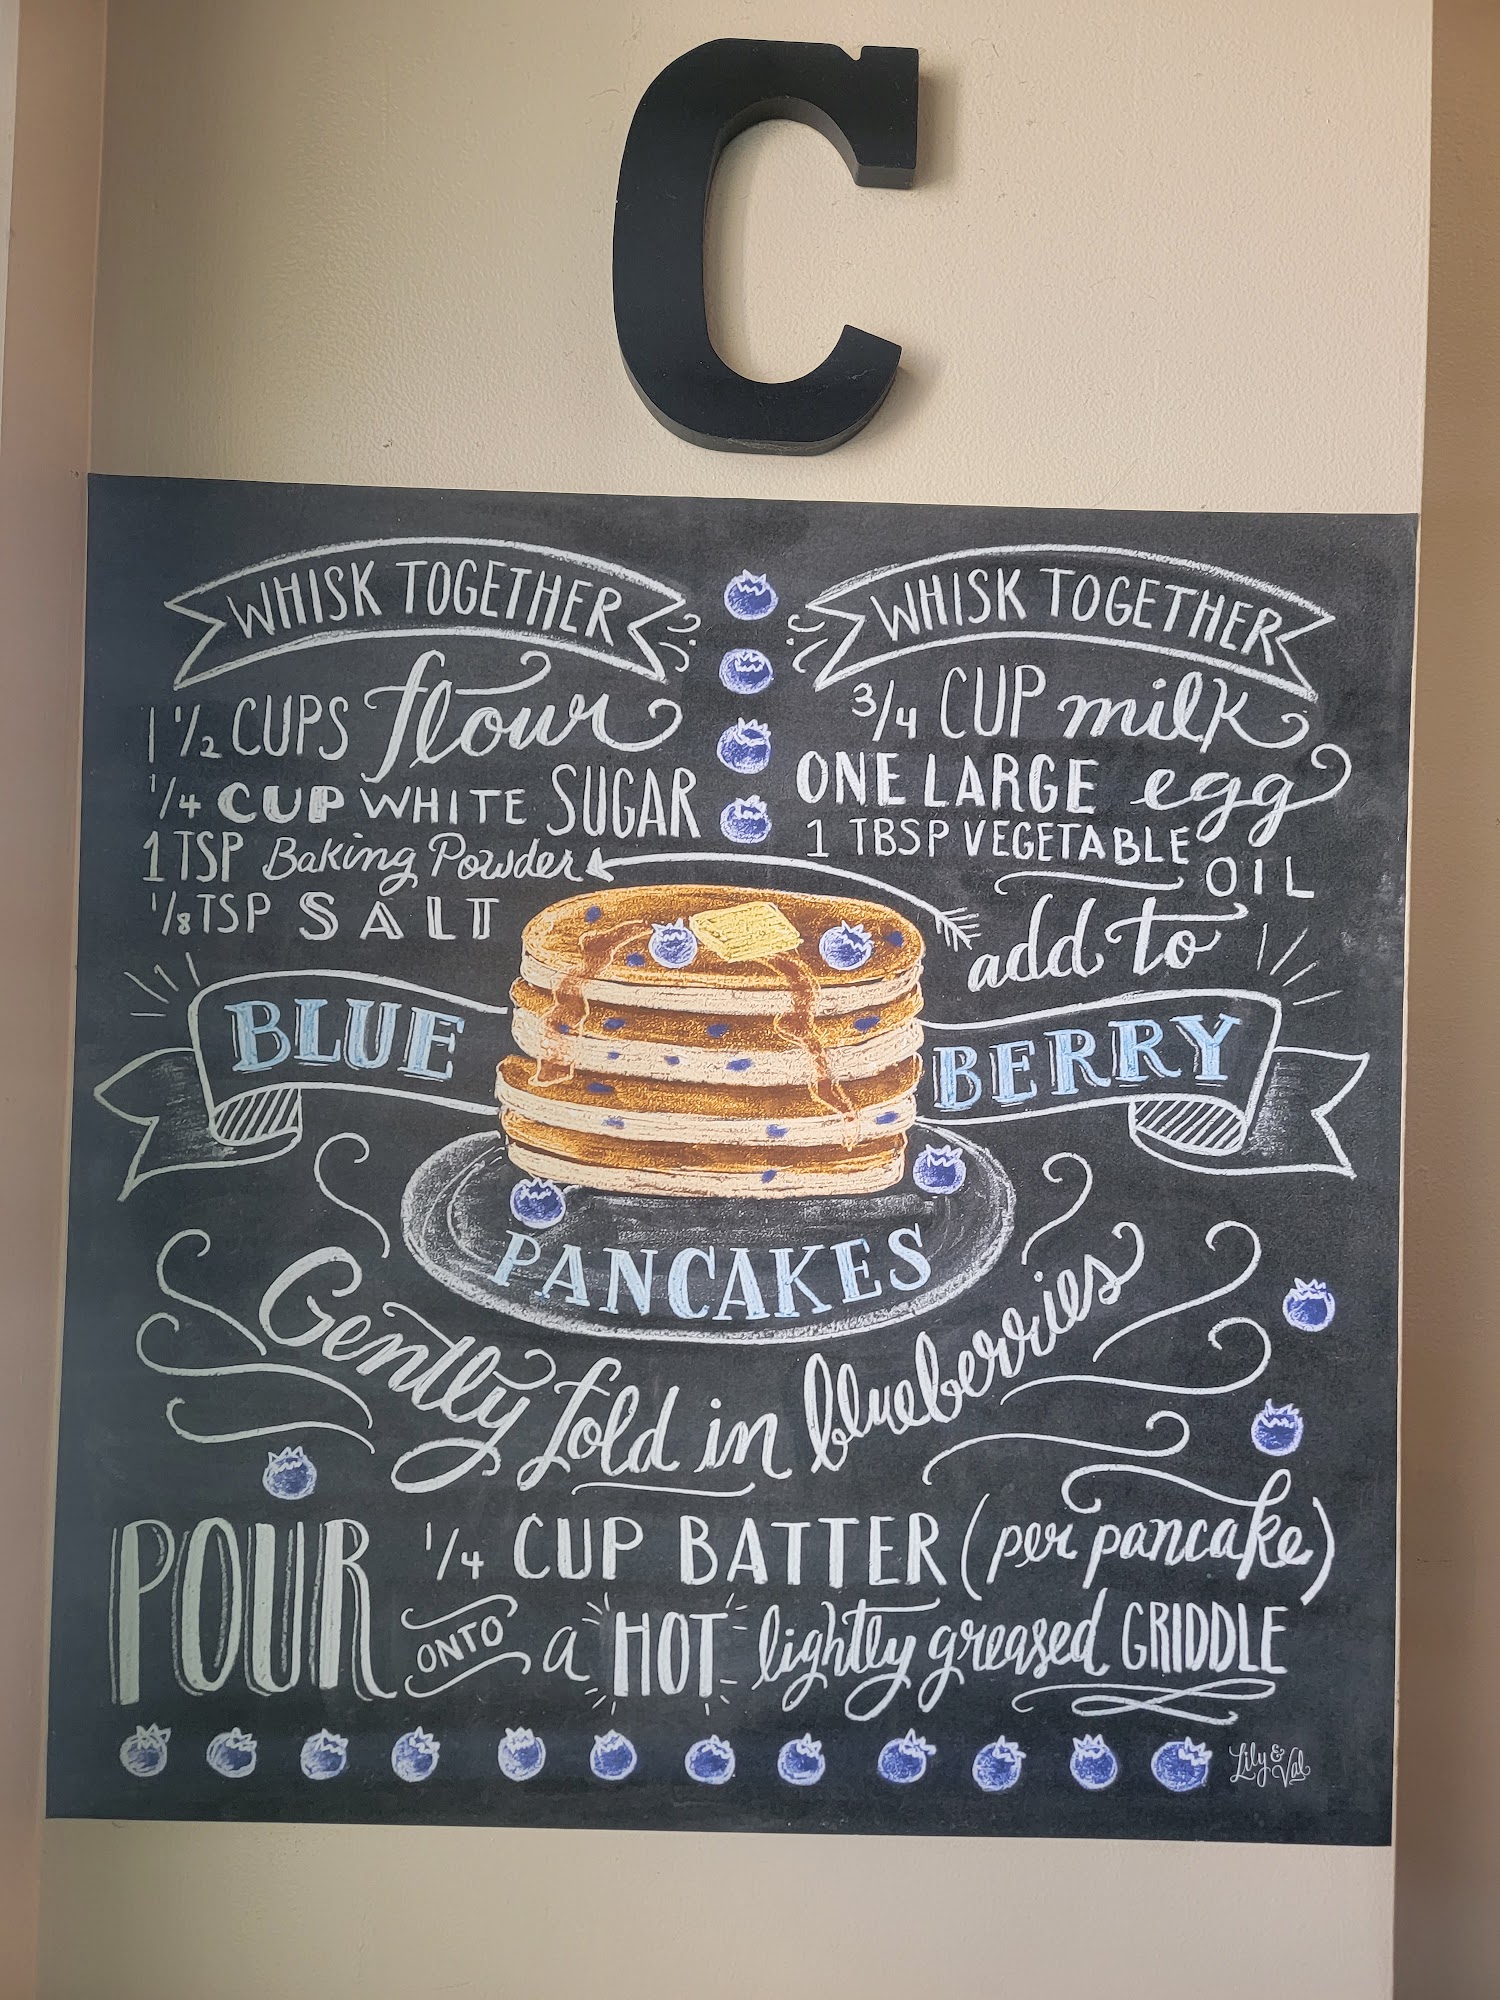 C
WHISK TOGETHER
1 1/2 CUPS flour
1/4 CUP WHITE SUGAR
1 TSP Baking Powder
1/8 TSP SALT
WHISK TOGETHER
3/4 CUP milk
ONE LARGE egg
1 TBSP VEGETABLE
OIL
add to
BLUE BERRY
PANCAKES
Gently fold in blueberries
POUR 1/4 CUP BATTER (per pancake)
ONTO a HOT lightly greased GRIDDLE
Lily & Val